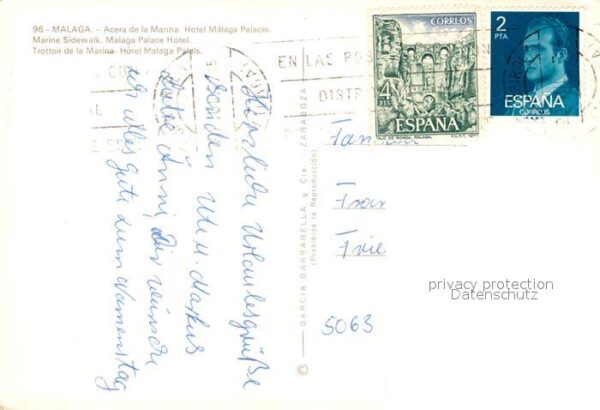 96 - MALAGA. - Acera de la Marina. Hotel Málaga Palacio.
Marine Sidewalk. Malaga Palace Hotel.
Trottoir de la Marina. Hotel Malaga Palais.
Herzliche Urlaubsgrüße
senden Ute u. Markus
Liebe Änni, Dir wünsche
ich alles Gute zum Namenstag
© GARCIA GARRABELLA y Cia. - ZARAGOZA
(Prohibida la Reproducción)
CORREOS
4 PTA
ESPAÑA
TAJO DE RONDA, MALAGA.
2 PTA
ESPAÑA
CORREOS
EN LAS
DISTR
Fam
Fran
Frie
5063
privacy protection
Datenschutz